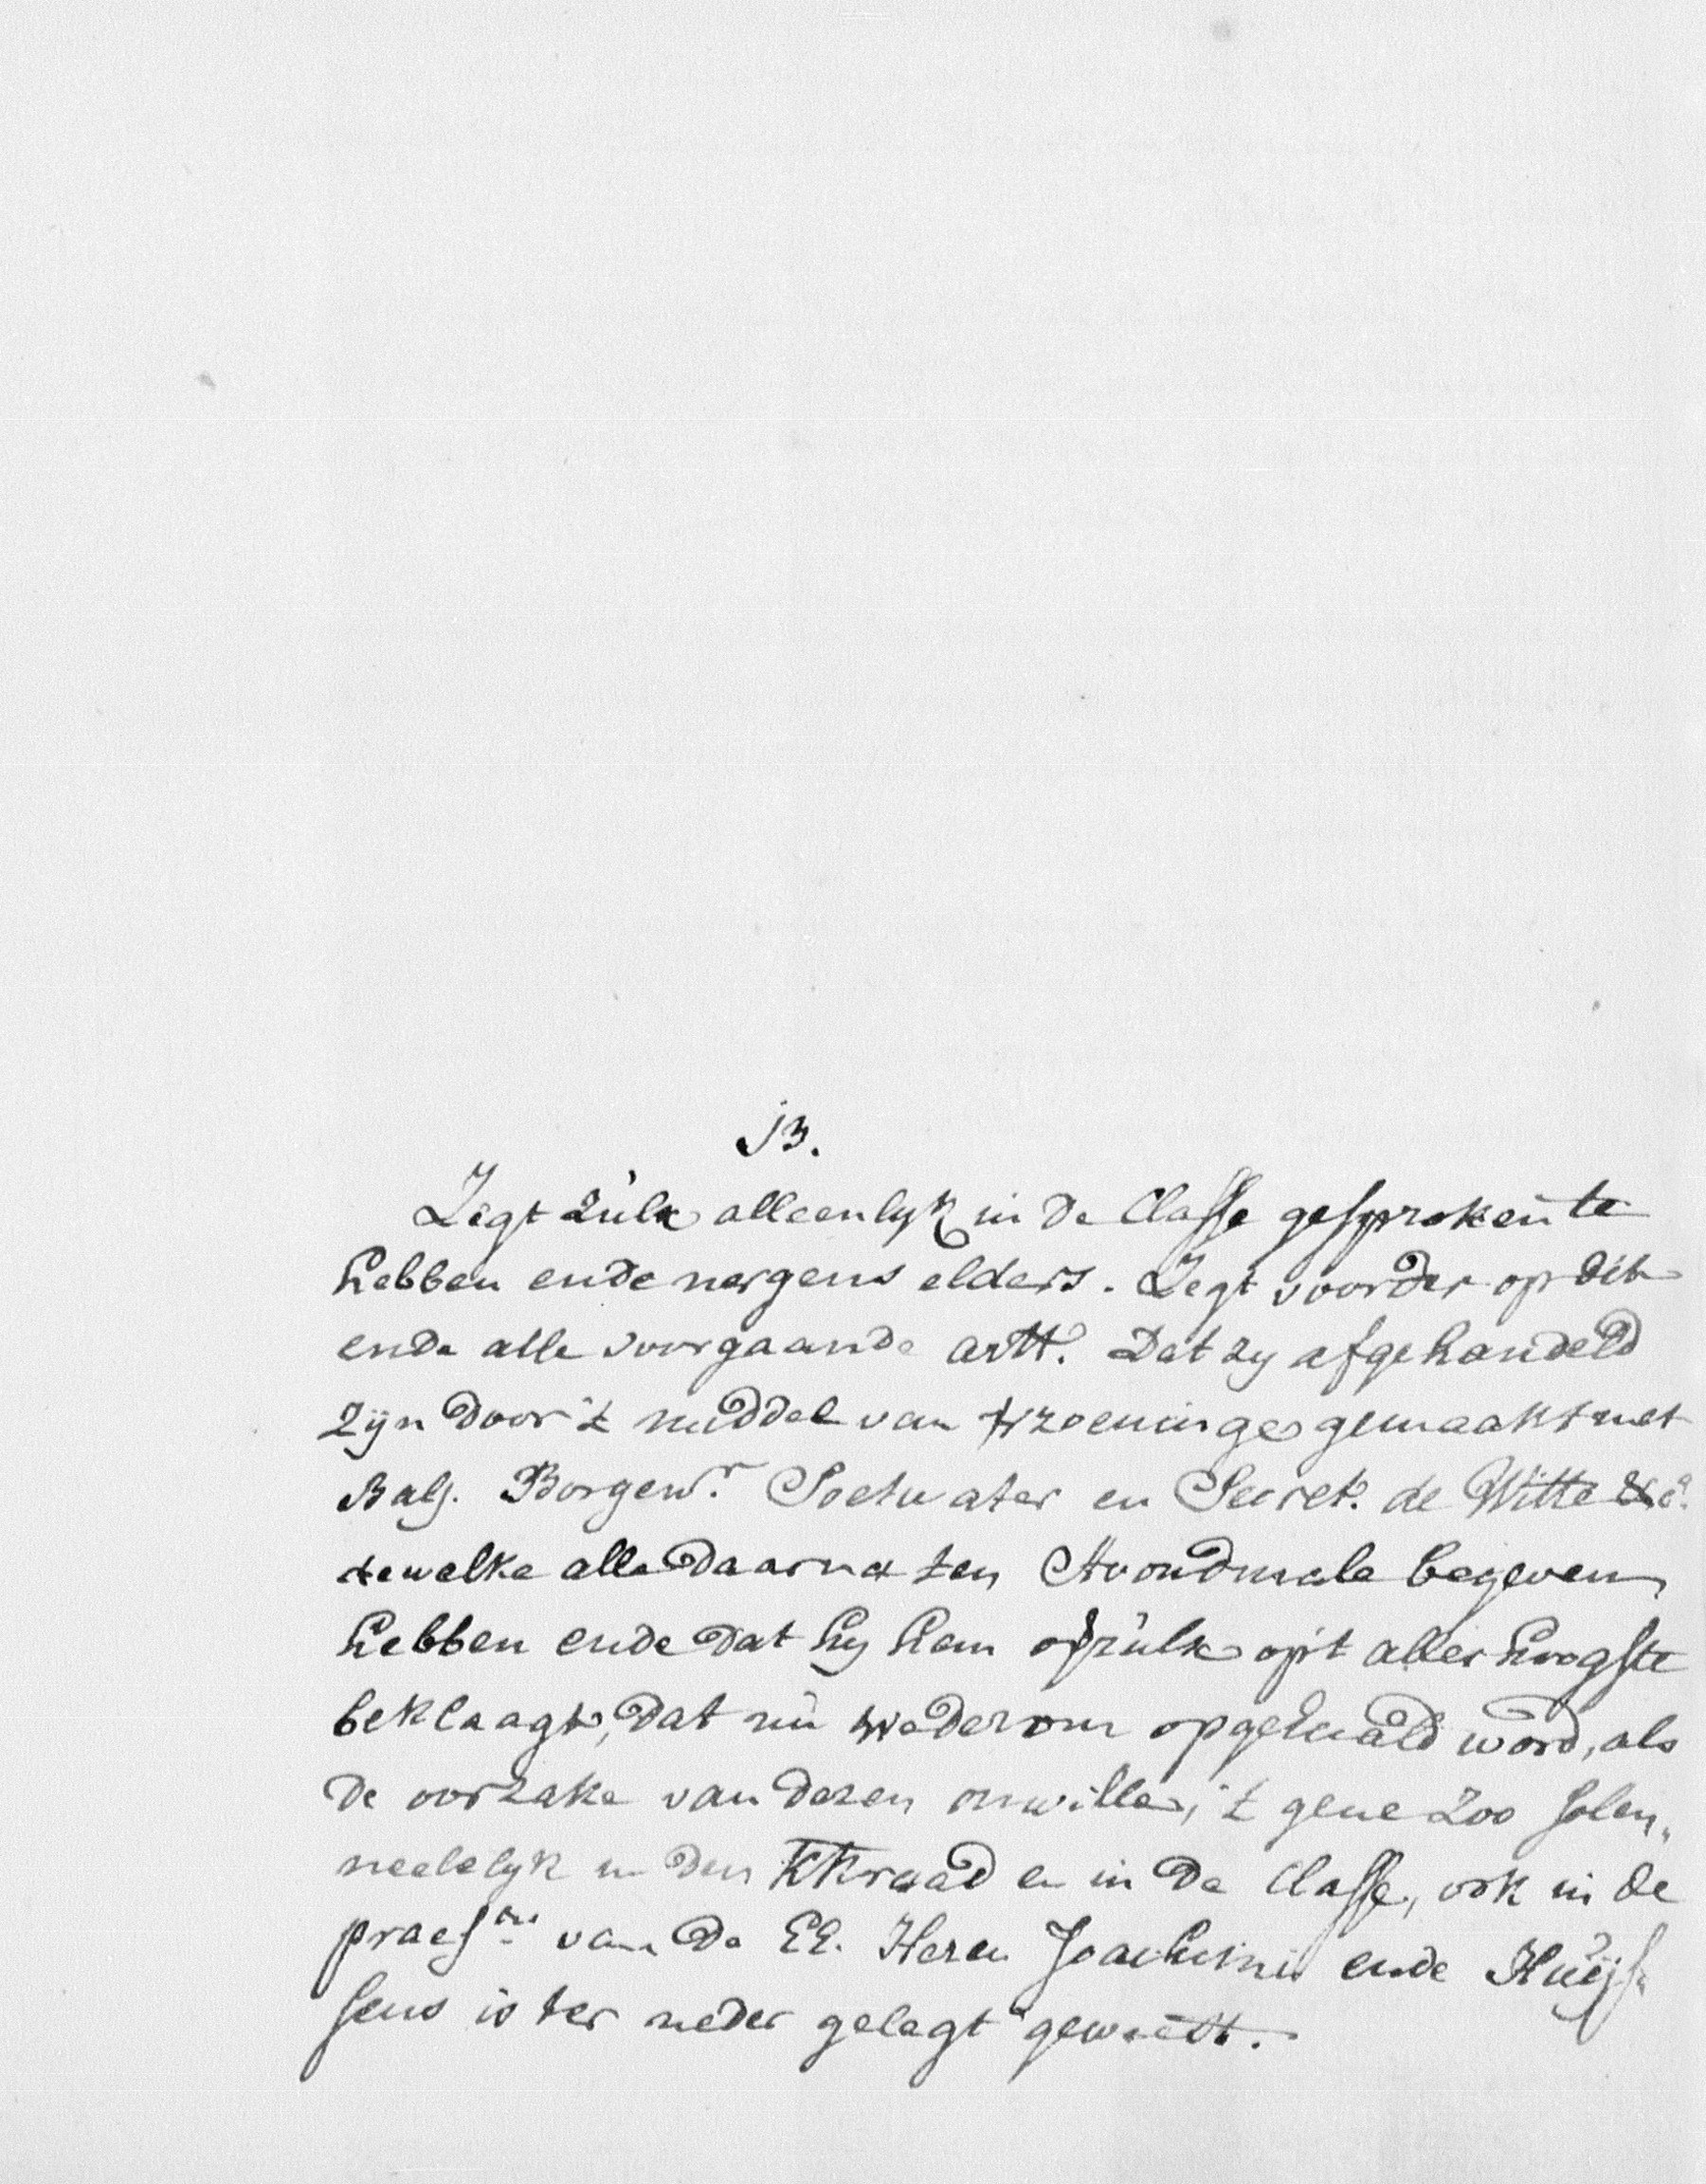 13.
Zegt zulx alleenlyk in de Classe gesproken te
hebben ende nergens elders. Zegt voorder op dit
ende alle voorgaande artt. Dat zy afgehandeld
zijn door 't middel van verzoeninge gemaakt met
Balj. Borgemr. Soetwater en Secret. de Witte &c.
dewelke alle daarna ten Avondmale begeven
hebben ende dat hy hem op zulk op't allerhoogste
beklaagt, dat nu wederom opgehaald word, als
de oorzake van dezen onwille, 't gene zoo solem„
neelelyk in den KKraad en in de Classe, ook in de
praesn. van de EE. Heren Joachimi ende Huijs
sens is ter neder gelegt geweest.